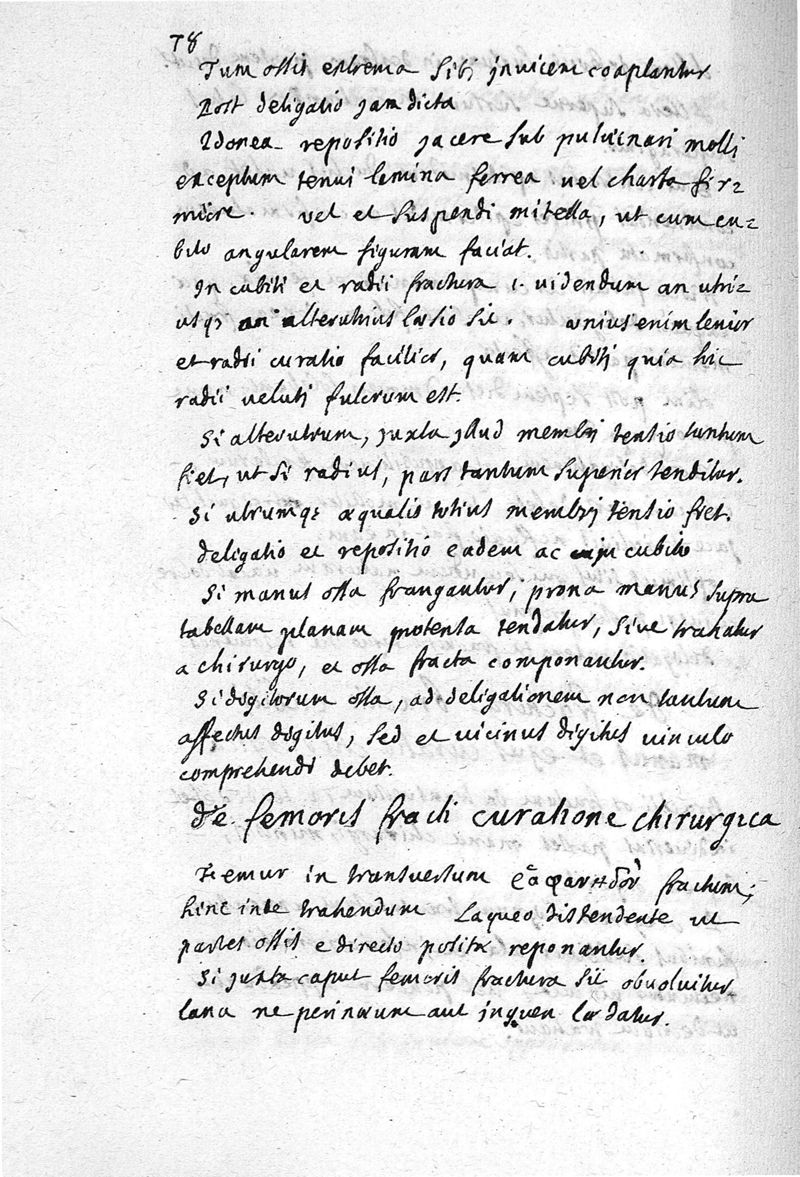 78
Tum ossis extrema sibi jnuicem coaplantur
Post deligatio jam dicta
Idonea repositio jacere sub puluinari molli
exceptum tenui lamina ferrea vel charta fir=
miore. vel et suspendi mitella, ut cum cu=
bito angularem figuram faciat.
In cubiti et radii fractura 1. uidendum an utri=
usq; an alterutrius laesio sit. unius enim leuior
et radii curatio facilior, quam cubitj quia hic
radii velutj fulcrum est.
Si alterutrum, juxta jllud membrj tensio tantum
fiet, ut si radius, pars tantum superior tenditur.
Si utrumq; aequalis totius membrj tensio fiet.
deligatio et repositio eadem ac cubito
Si manus ossa frangantur, prona manus supra
tabellam planam protensa tendatur, siue trahatur
a chirurgo, et ossa fracta componantur.
Si digitorum ossa, ad deligationem non tantum
affectus digitus, sed et uicinus digitus uinculo
comprehendi debet.
de femoris fracti curatione chirurgica
Femur in transuersum fractum;
hinc inde trahendum laqueo distendente ut
partes ossis e directo positae reponantur.
Si juxta caput femoris fractura sit obuoluitur
lana ne perinaeum aut jnguen laedatur.